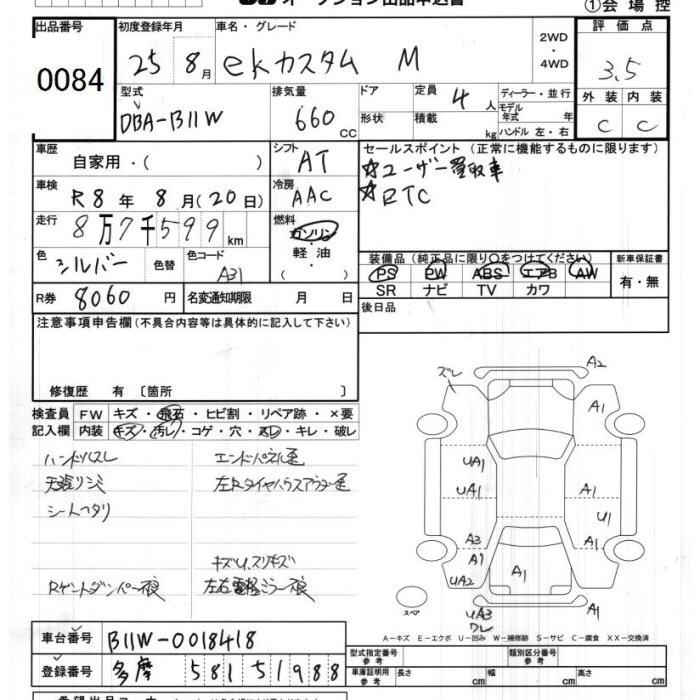 オークション出品申込書
①会場控
出品番号 初度登録年月 車名・グレード 評価点
0084 25 8月 ekカスタム M 2WD・4WD 3.5
型式 排気量 ドア 定員 4人 ディーラー・並行 外装 内装
DBA-B11W 660cc 形状 積載 kg モデル年式 年 C C
ハンドル 左・右
車歴 自家用・( ) シフト AT セールスポイント(正常に機能するものに限ります)
☆ユーザー買取車
車検 R8年 8月(20日) 冷房 AAC ☆ETC
走行 8万7千599km 燃料 ガソリン・軽油・( )
色 シルバー 色替 色コード A31 装備品(純正品に限り○をつけてください) 新車保証書
PS PW ABS エアB AW 有・無
SR ナビ TV カワ
R券 8060円 名変通知期限 月 日 後日品
注意事項申告欄(不具合内容等は具体的に記入して下さい)
修復歴 有〔箇所 〕
検査員 FW キズ・飛石・ヒビ割・リペア跡・×要
記入欄 内装 キズ・汚レ・コゲ・穴・スレ・キレ・破レ
ハンドルスレ エンドパネル歪
天張リシミ 左Rタイヤハウスアウター歪
シートヘタリ
キズU、スリキズ
Rゲートダンパー痕 左右電軽ミラー痕
ズレ A2
A1
UA1
UA1 A1
U1
A3
A1 A1
UA2 A1
スペア UA3 A1
ワレ
A-キズ E-エクボ U-凹み W-補修跡 S-サビ C-腐食 XX-交換済
車台番号 B11W-0018418 型式指定番号 参考 類別区分番号 参考
登録番号 多摩 581 5 1988 車庫証明用 参考 長さ cm 幅 cm 高さ cm